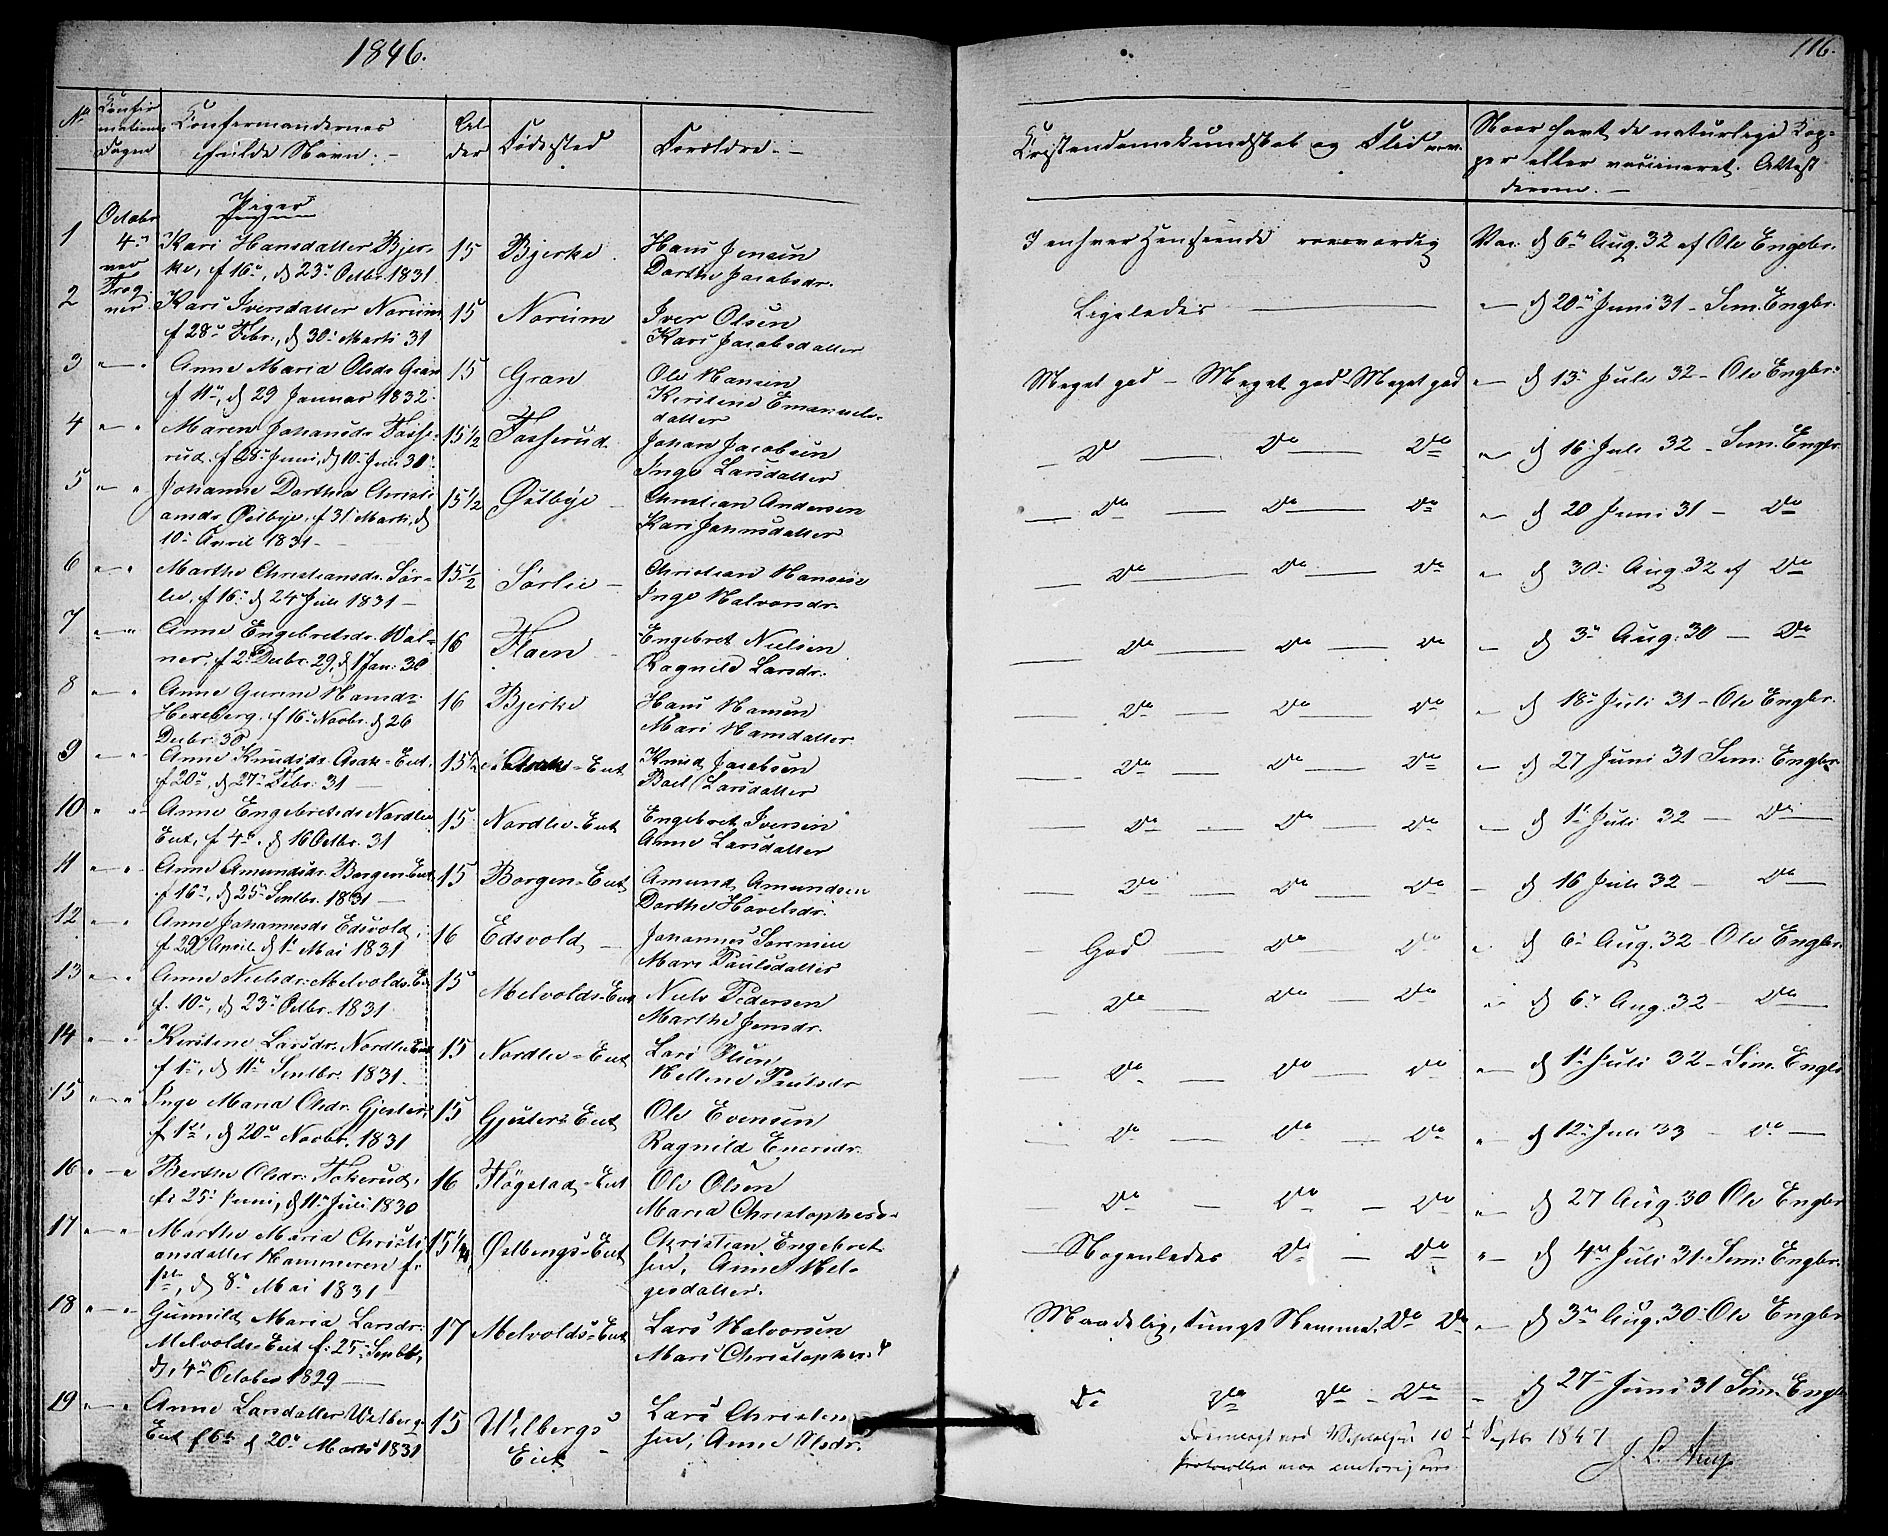 1846.
116.
No
Confir
mations
Dagen
Confirmandernes
fulde Navn. -
Al-
der
Fødested
Forældre. -
Kristendomskundskab og Flid
Naar havt de naturlige Kop-
per eller vaccineret. Attest
derom. -
Octobr
Piger
1
4de
ved
Frog
ner
Kari Hansdatter Bjer-
ke, f 16de, d 23de Octbr. 1831
15
Bjerke
Hans Jensen
Dorthe Jacobsdr.
I enhver Henseende roesværdig
Vac. d 6te Aug. 32 af Ole Engebr.
2
Kari Iversdatter Norum
f 28de Febr., d 30te Marti 31
15
Norum
Iver Olsen
Kari Jacobsdatter
Ligeledes
" d 20de Juni 31 - Sim. Engbr.
3
Anne Maria Olsdr Gran
f 11te, d 29 Januar 1832.
15
Gran
Ole Hansen
Kirstine Emanuels-
datter
Meget god - Meget god - Meget god
" d 13de Juli 32 - Ole Engbr.
4
Maren Johansdr Fosse-
rud. f 28de Juni, d 10de Juli 31
15 1/2
Fosserud.
Johan Jacobsen
Inge Larsdatter
Do Do Do
" d 16de Juli 32 - Sim. Engbr.
5
Johanne Dorthea Christi-
ansdr Østbye, f 31 Marti, d
10de April 1831 -
15 1/2
Østbye
Christian Andersen
Kari Johnsdatter
Do Do Do
" d 20 Juni 31 - Do
6
Marthe Christiansdr. Sør-
lie, f 16de d 24de Juli 1831 -
15 1/2
Sørlie -
Christian Hansen
Inge Halvorsdr.
Do Do Do
" d 30te Aug. 32 af Do
7
Anne Engebretsdr. Wal-
ner, f 2den Decbr. 29, d 1ste Jan. 30
16
Flaen -
Engebret Nielsen
Ragnild Larsdr.
Do Do Do
" d 3de Aug. 30 - Do
8
Anne Gurine Hansdr.
Hexeberg. f 16de Novbr. d 26
Decbr. 30
16
Bjerke
Hans Hansen
Mari Hansdatter
Do Do Do
" d 18de Juli 31 - Ole Engbr.
9
Anne Knudsdr. Asak-Eiet.
f 20de, d 27de Febr. 31 -
15 1/2
Asak-Eiet
Knud Jacobsen
Boel Larsdatter
Do Do Do
" d 27 Juni 31 Sim: Engbr.
10
Anne Engebretsdr Nordlie
Eiet, f 4de, d 16 Octbr. 31
15
Nordlie-Eiet
Engebret Iversen
Anne Larsdatter
Do Do Do
" d 1ste Juli 32 - Do
11
Anne Amundsdr. Borgen-Eiet,
f 16de, d 25de Septbr. 1831 -
15
Borgen-Eiet
Amund Amundsen
Dorthe Hovelsdr.
Do Do Do
" d 16 Juli 32 - Do
12
Anne Johannesdr Edsvold,
f 29de April d 1ste Mai 1831
16
Edsvold -
Johannes Sørensen
Mari Paulsdatter
God Do Do
" d 6te Aug. 32 - Ole Engbr.
13
Anne Nielsdr. Melvolds-Ei
f. 10de, d 23de Octbr. 1831
15
Melvolds-Eiet
Niels Pedersen
Marthe Jensdr.
Do Do Do
" d 6te Aug. 32 - Do
14
Kirstine Larsdr. Nordlie Eiet
f 1ste, d 11te Septbr. 1831.
15
Nordlie-Eiet
Lars
Helline Paulsdr
Do Do Do
" d 1ste Juli 32 - Sim. Engb
15
Inge Maria Olsdr. Gjesteri
f 1ste, d 20de Novbr. 1831
15
Gjesteri-Eiet
Ole Evensen
Ragnild Enersdr.
Do Do Do
" d 12te Juli 33 - Do -
16
Berthe Olsdr. Fokerud,
f. 25de Juni, d 11te Juli 1830
16
Høgstad-Eiet
Ole Olsen
Maria Christophersdr
Do Do Do
" d 27 Aug. 30 Ole Engbr
17
Marthe Maria Christi-
ansdatter Hammeren f.
1ste, d 8de Mai 1831 -
15 1/4
Østbergs-Eiet
Christian Engebret
sen, Anne Hel-
gesdatter.
Nogenledes Do Do
" d 4de Juli 31. Sim: Engbr.
18
Gunnild Maria Larsdr:
Melvolds-Eiet f. 25de Septbr,
d, 4de October 1829 -
17
Melvolds-Eiet
Lars Halvorsen
Mari Christophersd
Maadelig, tungt Nemme, Do Do
" d 3de Aug. 30 - Ole Engbr
19
Anne Larsdatter Wilbergs
Eiet f 6te d 20de Marti 1831
15
Wilbergs
Eiet -
Lars Christen
sen, Anne Olsdr.
Do Do Do - Do
- d 27de Juni 31 Sim. Engb
10de Septbr 1847